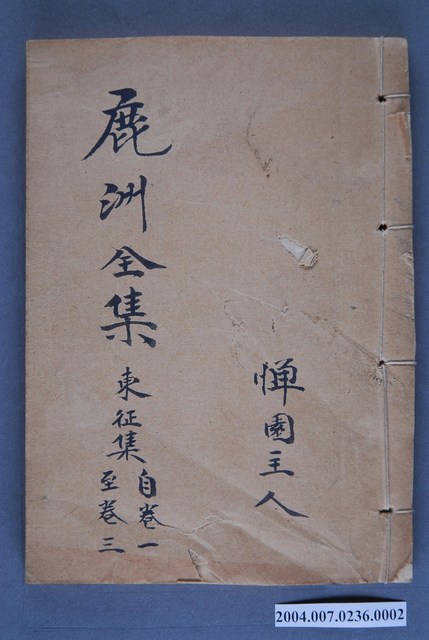 惮園主人
鹿洲全集
東征集
自卷一
至卷三
2004.007.0236.0002